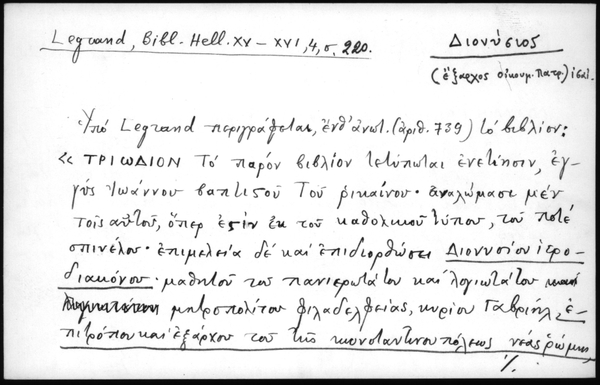 Legrand, Bibl. Hell. XV – XVI, 4, σ. 220.
Διονύσιος
(ἔξαρχος οἰκουμ. Πατρ.)
Ὑπὸ Legrand περιγράφεται, ἔνθ' ἀνωτ. (ἀριθ. 739) τὸ βιβλίον:
« ΤΡΙΩΔΙΟΝ Τὸ παρὸν βιβλίον τετύπωται ἐνετίησιν, ἐγ-
γὺς Ἰωάννου βαπτιστοῦ τοῦ ῥικαίνου· ἀναλώμασι μὲν
τοῖς αὐτοῦ, ὅπερ ἐστὶν ἐκ τοῦ καθολικοῦ τύπου, τοῦ ποτὲ
σπινέλου· ἐπιμελεία δὲ καὶ ἐπιδιορθώσει Διοννσίου ἱερο-
διακόνου· μαθητοῦ τοῦ πανιερωτάτου καὶ λογιωτάτου
μητροπολίτου φιλαδελφείας, κυρίου Γαβριήλ, ἐ-
πιτρόπου καὶ ἐξάρχου τοῦ τῆς κωνσταντινουπόλεως νέας ῥώμης,
./.